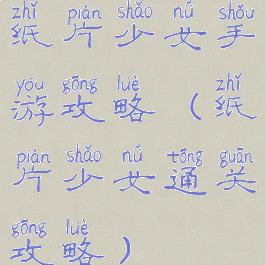 zhǐ piàn shǎo nǚ shǒu
纸片少女手
yóu gōng lüè zhǐ
游攻略（纸
piàn shǎo nǚ tōng guān
片少女通关
gōng lüè
攻略）